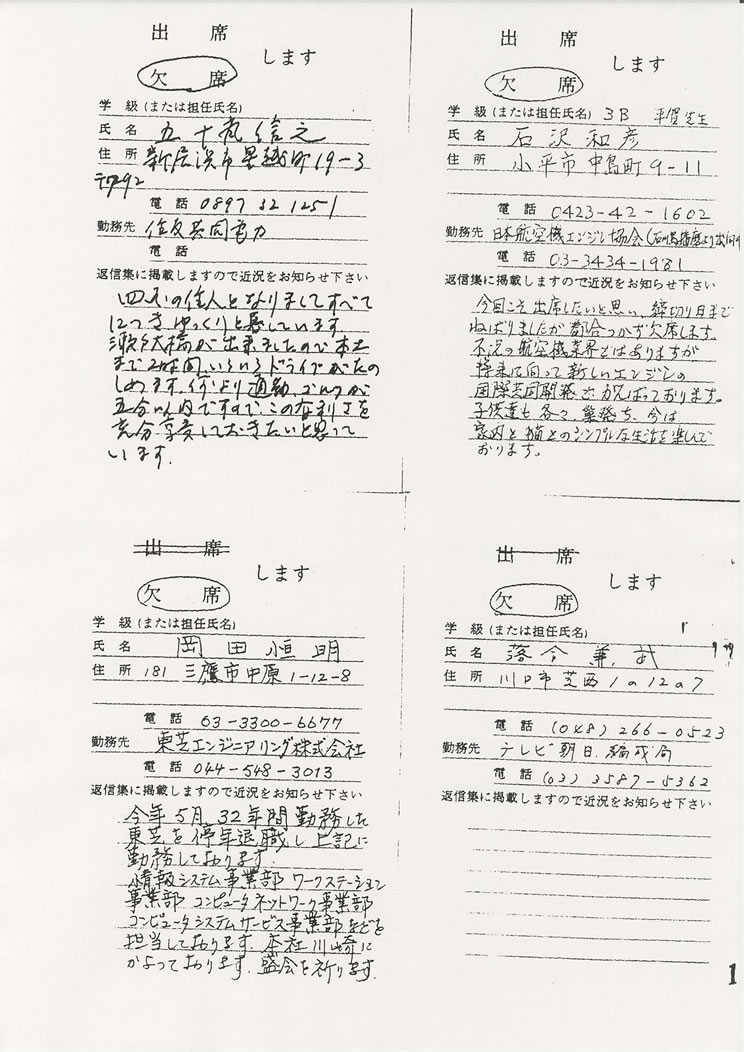 出席
します
欠席
学 級 (または担任氏名)
氏 名 五十嵐信之
住 所 新居浜市星越町19-3
〒792
電 話 0897 32 1251
勤務先 住友共同電力
電 話
返信集に掲載しますので近況をお知らせ下さい
四国の住人となりましてすべて
につきゆっくりと暮しています.
瀬戸大橋が出来ましたので本土
まで2時間,いろいろドライブがたの
しめます.何より通勤,ゴルフが
五分以内ですので,この便利さを
充分享受しておきたいと思って
います.
出席
します
欠席
学 級 (または担任氏名) 3B 平賀先生
氏 名 石沢和彦
住 所 小平市中島町9-11
電 話 0423-42-1602
勤務先 日本航空機エンジン協会(石川島播磨より出向中
電 話 03-3434-1981
返信集に掲載しますので近況をお知らせ下さい
今回こそ出席したいと思い、締切り日まで
ねばりましたが都合つかず欠席します。
不況の航空機業界ではありますが
将来に向って新しいエンジンの
国際共同開発でがんばっております。
子供達も各々、巣発ち、今は
家内と猫とのシンプルな生活を楽しんで
おります。
出席
します
欠席
学 級 (または担任氏名)
氏 名 岡田恒明
住 所 181 三鷹市中原1-12-8
電 話 03-3300-6677
勤務先 東芝エンジニアリング株式会社
電 話 044-548-3013
返信集に掲載しますので近況をお知らせ下さい
今年5月,32年間勤務した
東芝を停年退職し上記に
勤務しております.
情報システム事業部 ワークステーション
事業部 コンピュータネットワーク事業部
コンピュータシステムサービス事業部などを
担当しております.本社川崎に
かよっております.盛会を祈ります.
出席
します
欠席
学 級 (または担任氏名)
氏 名 落合兼武
住 所 川口市芝西1の12の7
電 話 (048) 266-0523
勤務先 テレビ朝日.編成局
電 話 (03) 3587-5362
返信集に掲載しますので近況をお知らせ下さい
1